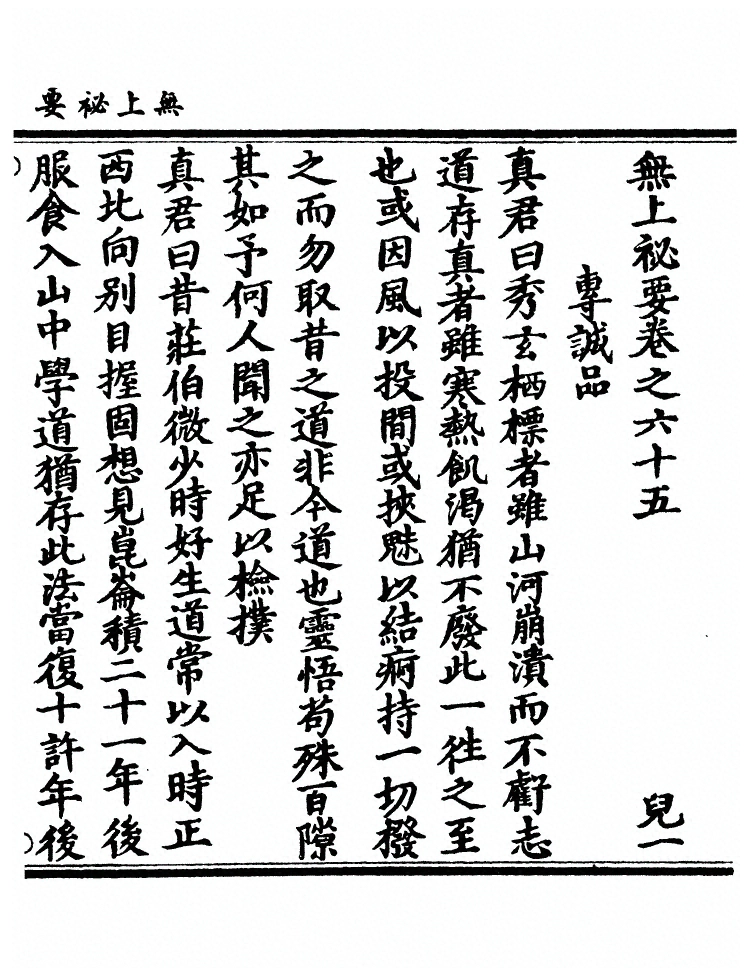 無上祕要
無上祕要卷之六十五 兒一
專誠品
真君曰秀玄栖標者雖山河崩潰而不虧志
道存真者雖寒熱飢渴猶不廢此一往之至
也或因風以投間或挾魅以結痾持一切撥
之而勿取昔之道非今道也靈悟苟殊百隙
其如予何人聞之亦足以檢撲
真君曰昔莊伯微少時好生道常以入時正
西北向別目握固想見崑崙積二十一年後
服食入山中學道猶存此法當復十許年後